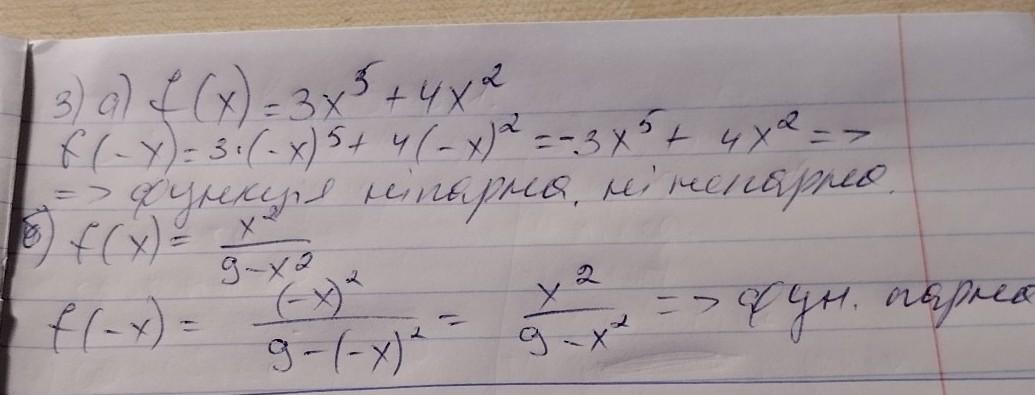 3) а) f(x) = 3x⁵ + 4x²
f(-x) = 3·(-x)⁵ + 4(-x)² = -3x⁵ + 4x² =>
=> функція ні парна, ні непарна.
б) f(x) = x² / 9-x²
f(-x) = (-x)² / 9-(-x)² = x² / 9-x² => фун. парна